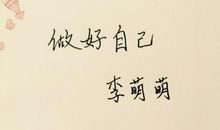 做好自己
李萌萌